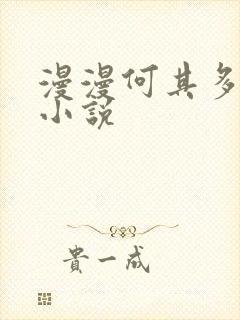 漫漫何其多
小説
貴一成